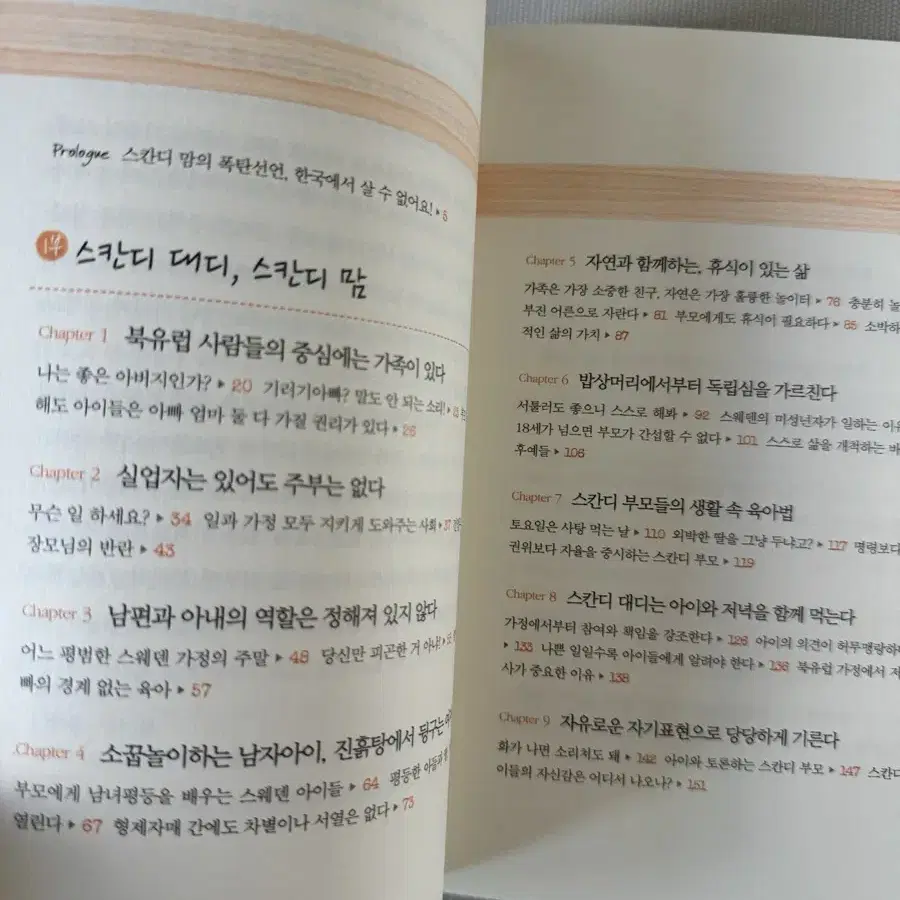 Prologue 스칸디 맘의 폭탄선언, 한국에서 살 수 없어요! ▶ 6
1부 스칸디 대디, 스칸디 맘
Chapter 1 북유럽 사람들의 중심에는 가족이 있다
나는 좋은 아버지인가? ▶ 20 기러기아빠? 말도 안 되는 소리! ▶
해도 아이들은 아빠 엄마 둘 다 가질 권리가 있다 ▶ 26
Chapter 2 실업자는 있어도 주부는 없다
무슨 일 하세요? ▶ 34 일과 가정 모두 지키게 도와주는 사회 ▶ 37
장모님의 반란 ▶ 43
Chapter 3 남편과 아내의 역할은 정해져 있지 않다
어느 평범한 스웨덴 가정의 주말 ▶ 48 당신만 피곤한 거 아냐! ▶
빠의 경계 없는 육아 ▶ 57
Chapter 4 소꿉놀이하는 남자아이, 진흙탕에서 뒹구는
부모에게 남녀평등을 배우는 스웨덴 아이들 ▶ 64 평등한
열린다 ▶ 67 형제자매 간에도 차별이나 서열은 없다 ▶ 73
Chapter 5 자연과 함께하는, 휴식이 있는 삶
가족은 가장 소중한 친구, 자연은 가장 훌륭한 놀이터 ▶ 76 충분히 놀
부전 어른으로 자란다 ▶ 81 부모에게도 휴식이 필요하다 ▶ 85 소박하
적인 삶의 가치 ▶ 87
Chapter 6 밥상머리에서부터 독립심을 가르친다
서툴러도 좋으니 스스로 해봐 ▶ 92 스웨덴의 미성년자가 일하는 이유
18세가 넘으면 부모가 간섭할 수 없다 ▶ 101 스스로 삶을 개척하는 바
후예들 ▶ 106
Chapter 7 스칸디 부모들의 생활 속 육아법
토요일은 사탕 먹는 날 ▶ 110 외박한 딸을 그냥 두냐고? ▶ 117 명령보다
권위보다 자율을 중시하는 스칸디 부모 ▶ 119
Chapter 8 스칸디 대디는 아이와 저녁을 함께 먹는다
가정에서부터 참여와 책임을 강조한다 ▶ 128 아이의 의견이 허무맹랑하
▶ 133 나쁜 일일수록 아이들에게 알려야 한다 ▶ 136 북유럽 가정에서 저
사가 중요한 이유 ▶ 138
Chapter 9 자유로운 자기표현으로 당당하게 기른다
화가 나면 소리쳐도 돼 ▶ 142 아이와 토론하는 스칸디 부모 ▶ 147 스칸디
이들의 자신감은 어디서 나오나? ▶ 151